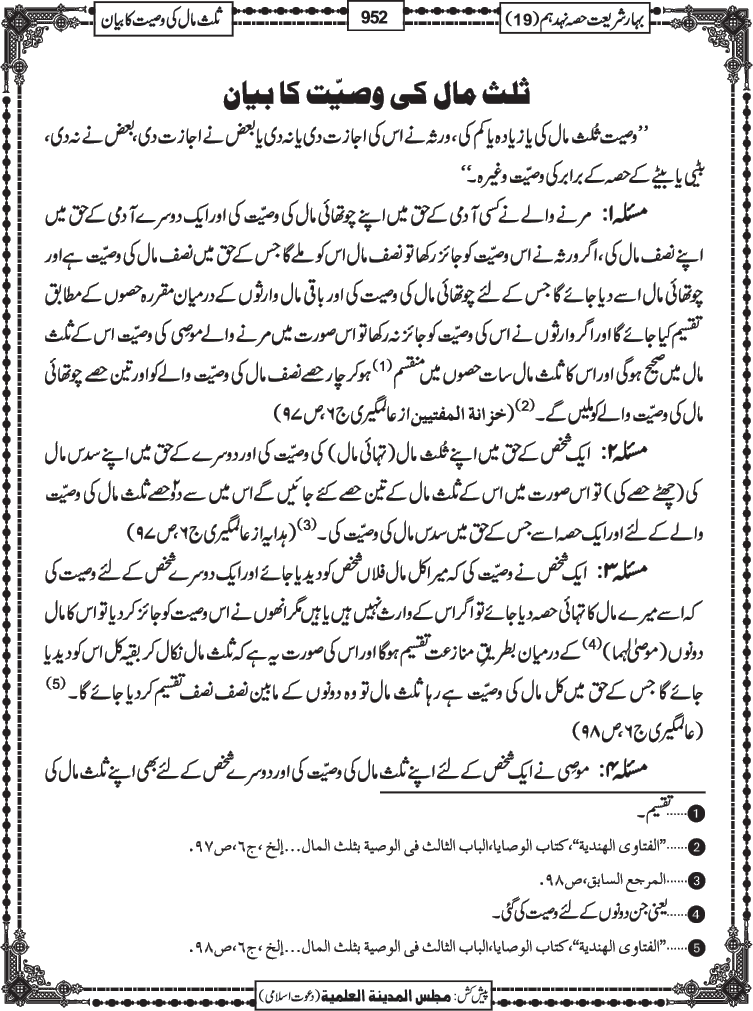 بہارِ شریعت حصہ نہد ہم (19)
952
ثلث مال کی وصیت کا بیان
ثلث مال کی وصیّت کا بیان
’’وصیت ثُلث مال کی یا زیادہ یا کم کی، ورثہ نے اس کی اجازت دی یا نہ دی یا بعض نے اجازت دی، بعض نے نہ دی،
بیٹی یا بیٹے کے حصہ کے برابر کی وصیّت وغیرہ۔‘‘
مسئلہ ۱: مرنے والے نے کسی آدمی کے حق میں اپنے چوتھائی مال کی وصیّت کی اور ایک دوسرے آدمی کے حق میں
اپنے نصف مال کی، اگر ورثہ نے اس وصیّت کو جائز رکھا تو نصف مال اس کو ملے گا جس کے حق میں نصف مال کی وصیّت ہے اور
چوتھائی مال اسے دیا جائے گا جس کے لئے چوتھائی مال کی وصیت کی اور باقی مال وارثوں کے درمیان مقررہ حصوں کے مطابق
تقسیم کیا جائے گا اور اگر وارثوں نے اس کی وصیّت کو جائز نہ رکھا تو اس صورت میں مرنے والے موصِی کی وصیّت اس کے ثلث
مال میں صحیح ہوگی اور اس کا ثلث مال سات حصوں میں منقسم(1) ہوکر چار حصے نصف مال کی وصیّت والے کو اور تین حصے چوتھائی
مال کی وصیّت والے کو ملیں گے۔(2) (خزانة المفتیین از عالمگیری ج۶، ص۹۷)
مسئلہ ۲: ایک شخص کے حق میں اپنے ثُلث مال (تہائی مال) کی وصیّت کی اور دوسرے کے حق میں اپنے سدس مال
کی (چھٹے حصے کی) تو اس صورت میں اس کے ثلث مال کے تین حصے کئے جائیں گے اس میں سے دو۲ حصے ثلث مال کی وصیّت
والے کے لئے اور ایک حصہ اسے جس کے حق میں سدس مال کی وصیّت کی۔(3) (ہدایہ از عالمگیری ج۶، ص۹۷)
مسئلہ ۳: ایک شخص نے وصیّت کی کہ میرا کل مال فلاں شخص کو دیدیا جائے اور ایک دوسرے شخص کے لئے وصیت کی
کہ اسے میرے مال کا تہائی حصہ دیا جائے تو اگر اس کے وارث نہیں ہیں یا ہیں مگر انھوں نے اس وصیّت کو جائز کر دیا تو اس کا مال
دونوں (موصیٰ لہما)(4) کے درمیان بطریقِ منازعت تقسیم ہوگا اور اس کی صورت یہ ہے کہ ثلث مال نکال کر بقیہ کل اس کو دیدیا
جائے گا جس کے حق میں کل مال کی وصیّت ہے رہا ثلث مال تو وہ دونوں کے مابین نصف نصف تقسیم کر دیا جائے گا۔(5)
(عالمگیری ج۶، ص۹۸)
مسئلہ ۴: موصِی نے ایک شخص کے لئے اپنے ثلث مال کی وصیّت کی اور دوسرے شخص کے لئے بھی اپنے ثلث مال کی
1 ......تقسیم۔
2 ......”الفتاوی الهندية“، کتاب الوصايا، الباب الثالث فی الوصية بثلث المال...إلخ، ج٦، ص٩٧.
3 ......المرجع السابق، ص٩٨.
4 ......یعنی جن دونوں کے لئے وصیت کی گئی۔
5 ......”الفتاوی الهندية“، کتاب الوصايا، الباب الثالث فی الوصية بثلث المال...إلخ، ج٦، ص٩٨.
پیش کش: مجلس المدينة العلمية (دعوت اسلامی)